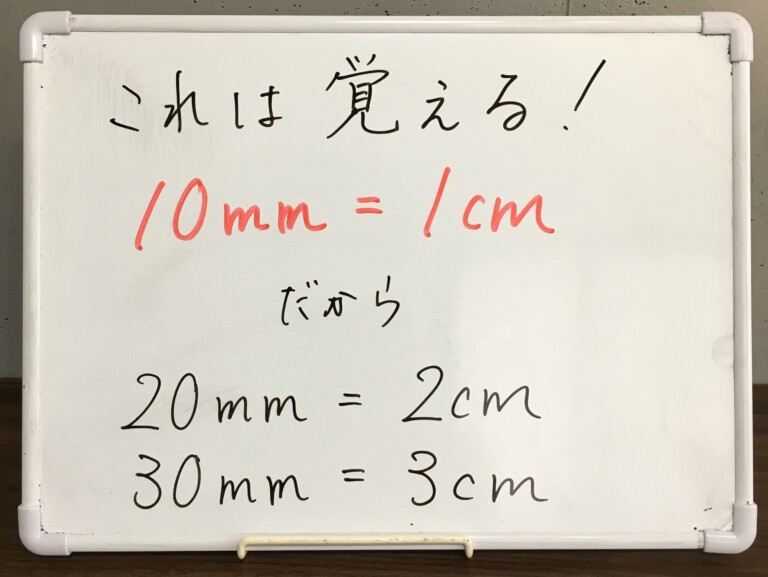 これは覚える!
10mm = 1cm
だから
20mm = 2cm
30mm = 3cm